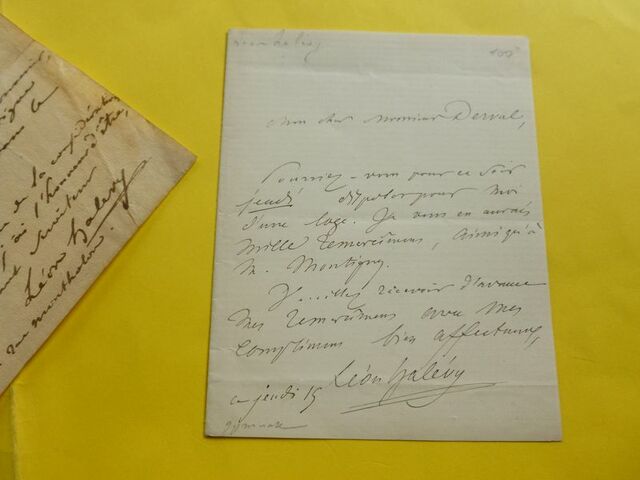 de la considération
où l'honneur d'être,
serviteur
Léon Halévy
rue Montholon.
Léon Halévy
100
Mon cher Monsieur Derval,
Pourriez-vous pour ce soir
jeudi disposer pour moi
d'une loge. Je vous en aurais
mille remercîmens, ainsi qu'à
M. Montigny.
Veuillez recevoir d'avance
mes remercîmens avec mes
complimens bien affectueux,
Léon Halévy
ce jeudi 15
gymnase